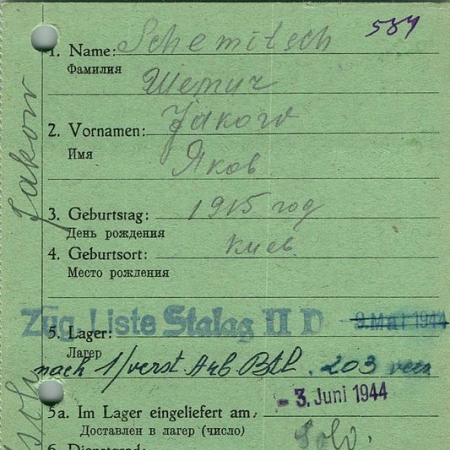 584
1. Name: Schemitsch
Фамилия
Шемич
2. Vornamen: Jakow
Имя
Яков
Jakow
3. Geburtstag: 1915 год
День рождения
4. Geburtsort: Киев
Место рождения
Zug. Liste Stalag II D 9. Mai 1944
5. Lager:
Лагер
nach 1/verst Arb Btl. 203 vers
- 3. Juni 1944
5a. Im Lager eingeliefert am:
Доставлен в лагер (число)
Sold.
6. Dienstgrad: